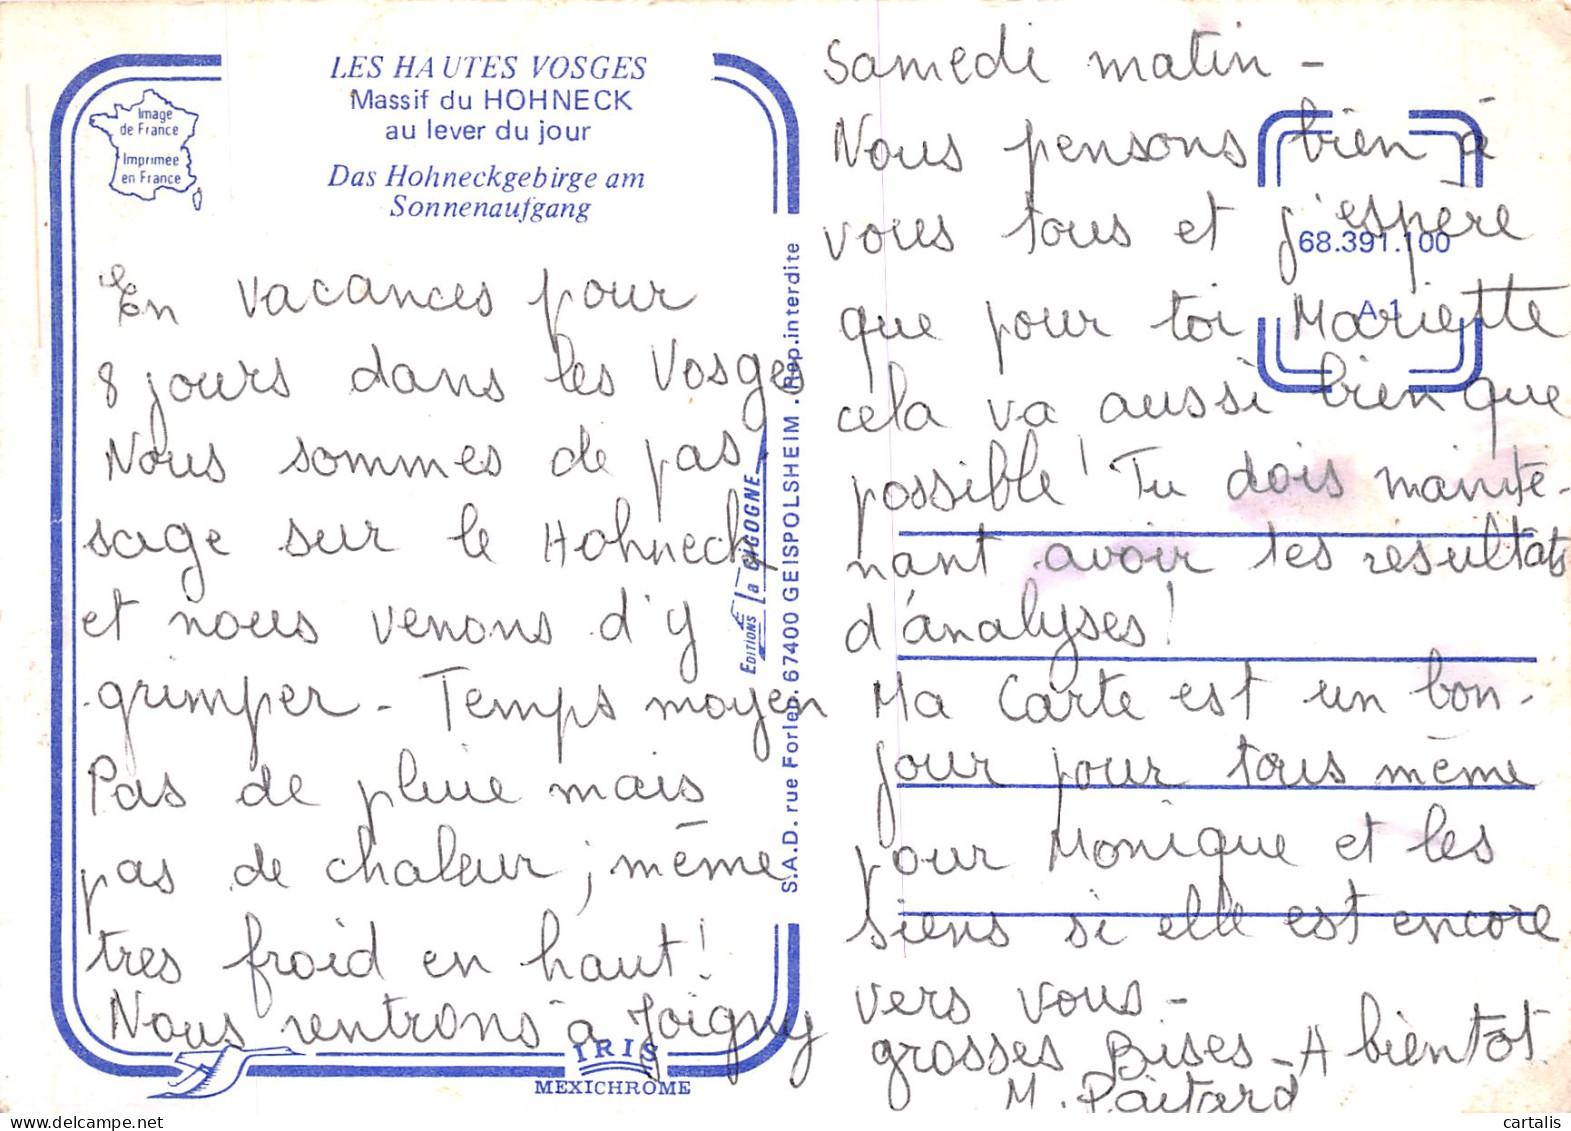 LES HAUTES VOSGES
Massif du HOHNECK
au lever du jour
Das Hohneckgebirge am
Sonnenaufgang
Image
de France
Imprimée
en France
En vacances pour
8 jours dans les Vosges
Nous sommes de pas
sage sur le Hohneck
et nous venons d'y
grimper - Temps moyen
Pas de pluie mais
pas de chaleur, même
tres froid en haut!
Nous rentrons à Joigny
IRIS
MEXICHROME
EDITIONS La CIGOGNE
S.A.D. rue Forlen. 67400 GEISPOLSHEIM . Rep.interdite
68.391.100
A 1
Samedi matin -
Nous pensons bien à
vous tous et j'espère
que pour toi Mariette
cela va aussi bien que
possible! Tu dois mainte-
nant avoir tes resultats
d'analyses!
Ma Carte est un bon-
jour pour tous même
pour Monique et les
siens si elle est encore
vers vous -
grosses Bises - A bientôt
M. Paitard
cartalis